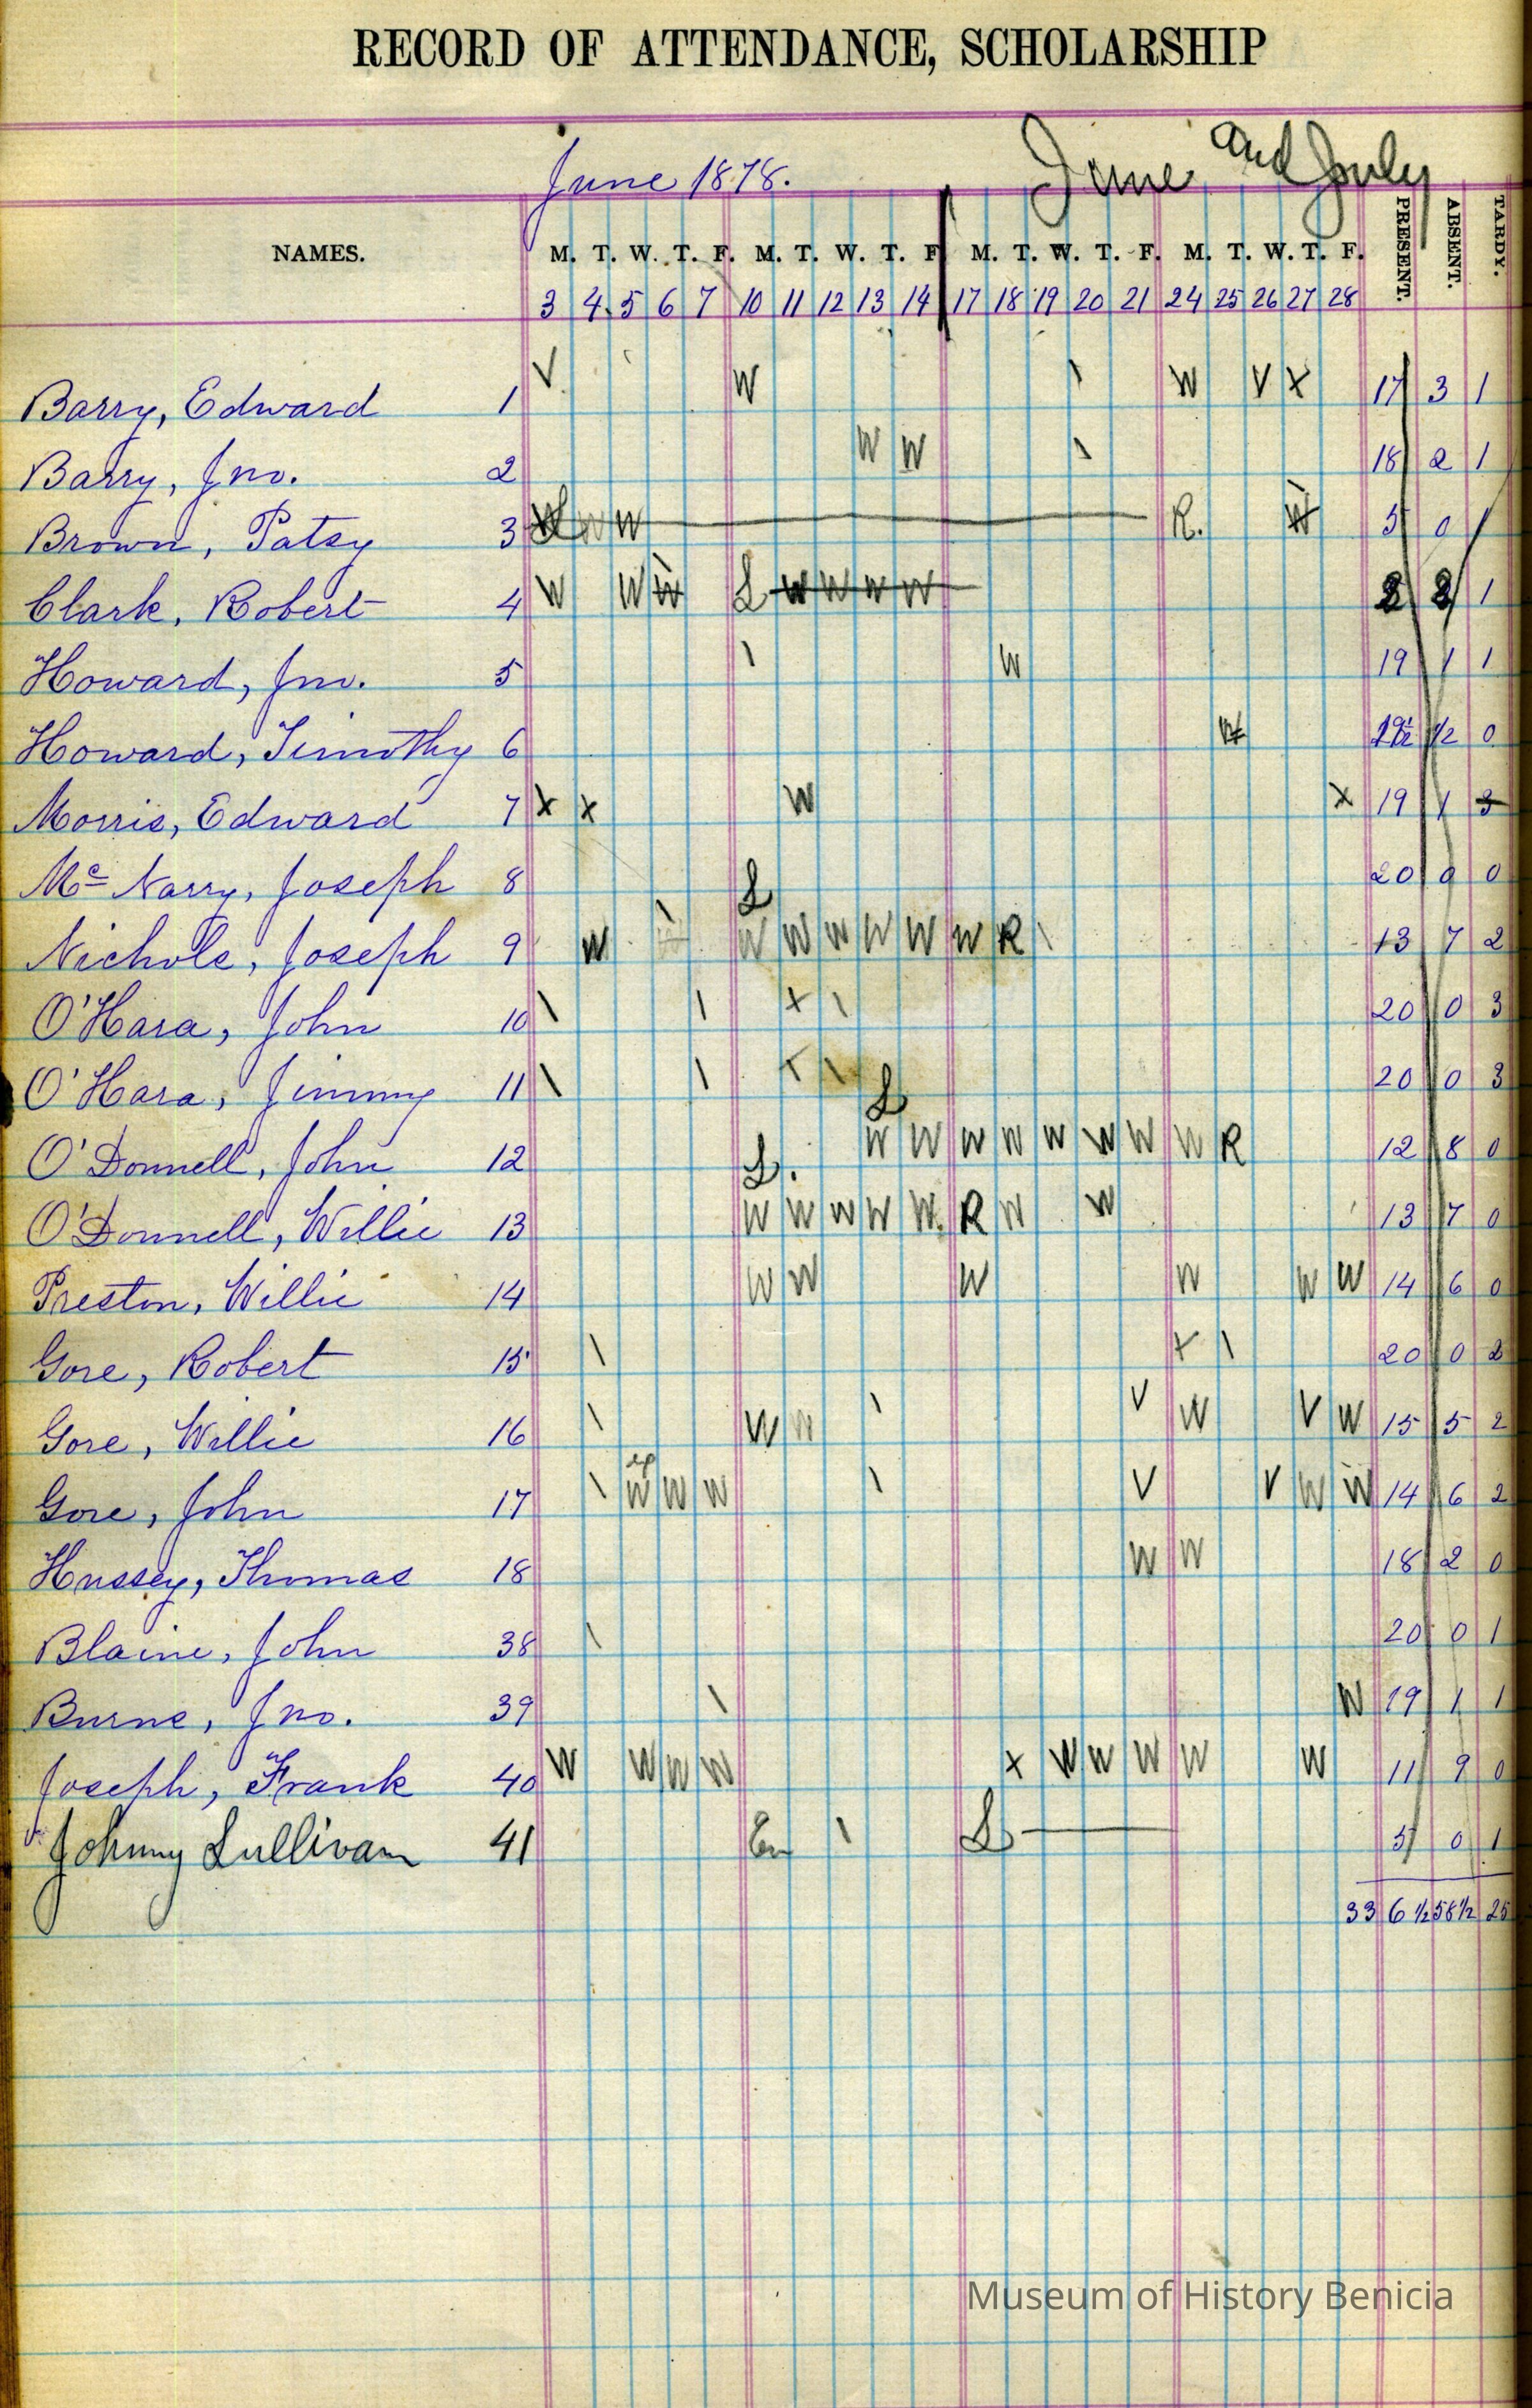 RECORD OF ATTENDANCE, SCHOLARSHIP
June 1878. June and July
NAMES. M. T. W. T. F. M. T. W. T. F M. T. W. T. F. M. T. W. T. F. PRESENT. ABSENT. TARDY.
3 4 5 6 7 10 11 12 13 14 17 18 19 20 21 24 25 26 27 28
Barry, Edward 1 V W \ W V X 17 3 1
Barry, Jno. 2 W W \ 18 2 1
Brown, Patsy 3 W W R. W 5 0 1
Clark, Robert 4 W W W L W W W W 1
Howard, Jno. 5 \ W 19 1 1
Howard, Timothy 6 W 19½ ½ 0
Morris, Edward 7 X X W X 19 1 3
Mc Narry, Joseph 8 20 0 0
Nichols, Joseph 9 W L W W W W W W R \ 13 7 2
O'Hara, John 10 \ \ X \ 20 0 3
O'Hara, Jimmy 11 \ \ \ 20 0 3
O'Donnell, John 12 L W W W W W W W W R 12 8 0
O'Donnell, Willie 13 L. W W W W W R W W 13 7 0
Preston, Willie 14 W W W W W W 14 6 0
Gore, Robert 15 \ X \ 20 0 2
Gore, Willie 16 \ W W \ V W V W 15 5 2
Gore, John 17 \ W W W \ V V W W 14 6 2
Hussey, Thomas 18 W W 18 2 0
Blaine, John 38 \ 20 0 1
Burns, Jno. 39 \ W 19 1 1
Joseph, Frank 40 W W W W X W W W W W 11 9 0
Johnny Sullivan 41 En \ L 5 0 1
336½ 58½ 25
Museum of History Benicia